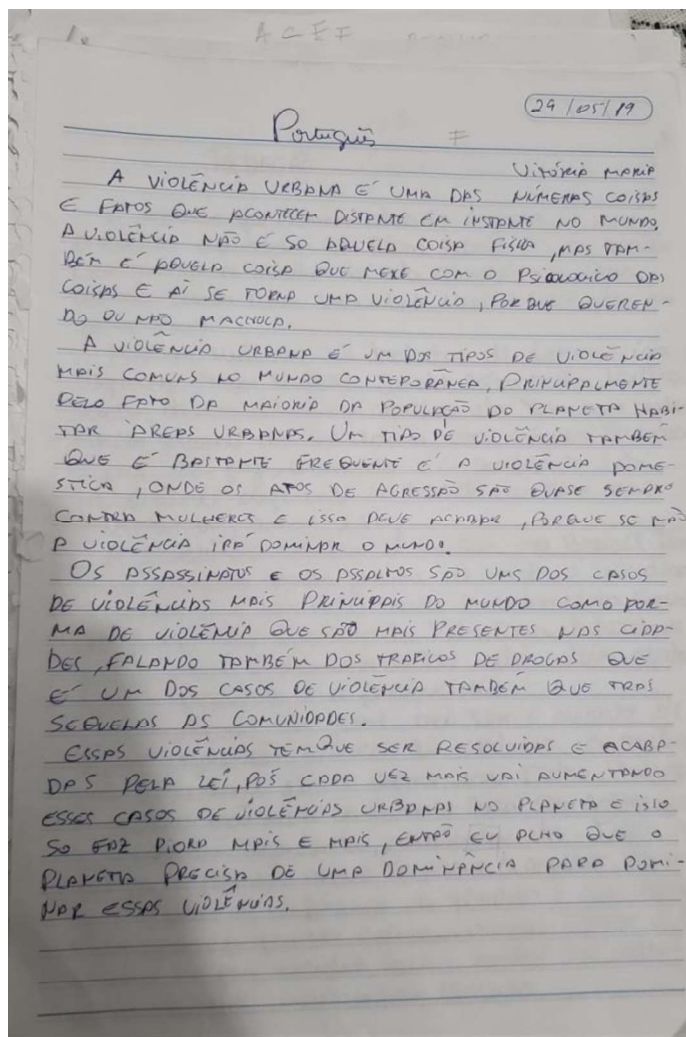 29/05/19
Português
Vitória Maria
A VIOLÊNCIA URBANA É UMA DAS NÚMERAS COISAS
E FATOS QUE ACONTECEM DISTANTE EM INSTANTE NO MUNDO.
A VIOLÊNCIA NÃO É SO AQUELA COISA FISICA, MAS TAM-
BÉM É AQUELA COISA QUE MEXE COM O PSICOLOGICO DAS
COISAS E AÍ SE TORNA UMA VIOLÊNCIA, PORQUE QUEREN-
DO OU NÃO MACHUCA.
A VIOLÊNCIA URBANA É UM DOS TIPOS DE VIOLÊNCIA
MAIS COMUNS NO MUNDO CONTEPORÂNEA, PRINCIPALMENTE
PELO FATO DA MAIORIA DA POPULAÇÃO DO PLANETA HABI-
TAR ÁREAS URBANAS. UM TIPO DE VIOLÊNCIA TAMBÉM
QUE É BASTANTE FREQUENTE É A VIOLÊNCIA DOME-
STICA, ONDE OS ATOS DE AGRESSÃO SÃO QUASE SEMPRE
CONTRA MULHERES E ISSO DEVE ACABAR, PORQUE SE NÃO
A VIOLÊNCIA IRÁ DOMINAR O MUNDO.
OS ASSASSINATOS E OS ASSALTOS SÃO UMS DOS CASOS
DE VIOLÊNCIAS MAIS PRINCIPAIS DO MUNDO COMO FOR-
MA DE VIOLÊNCIA QUE SÃO MAIS PRESENTES NAS CIDA-
DES, FALANDO TAMBÉM DOS TRAFICOS DE DROGAS QUE
É UM DOS CASOS DE VIOLÊNCIA TAMBÉM QUE TRAS
SEQUELAS AS COMUNIDADES.
ESSAS VIOLÊNCIAS TEM QUE SER RESOLVIDAS E ACABA-
DAS PELA LEI, POS CADA VEZ MAIS VAI AUMENTANDO
ESSES CASOS DE VIOLÊNCIAS URBANAS NO PLANETA E ISIO
SO FAZ PIORA MAIS E MAIS, ENTÃO EU ACHO QUE O
PLANETA PRECISA DE UMA DOMINÂNCIA PARA DOMI-
NAR ESSAS VIOLÊNCIAS.